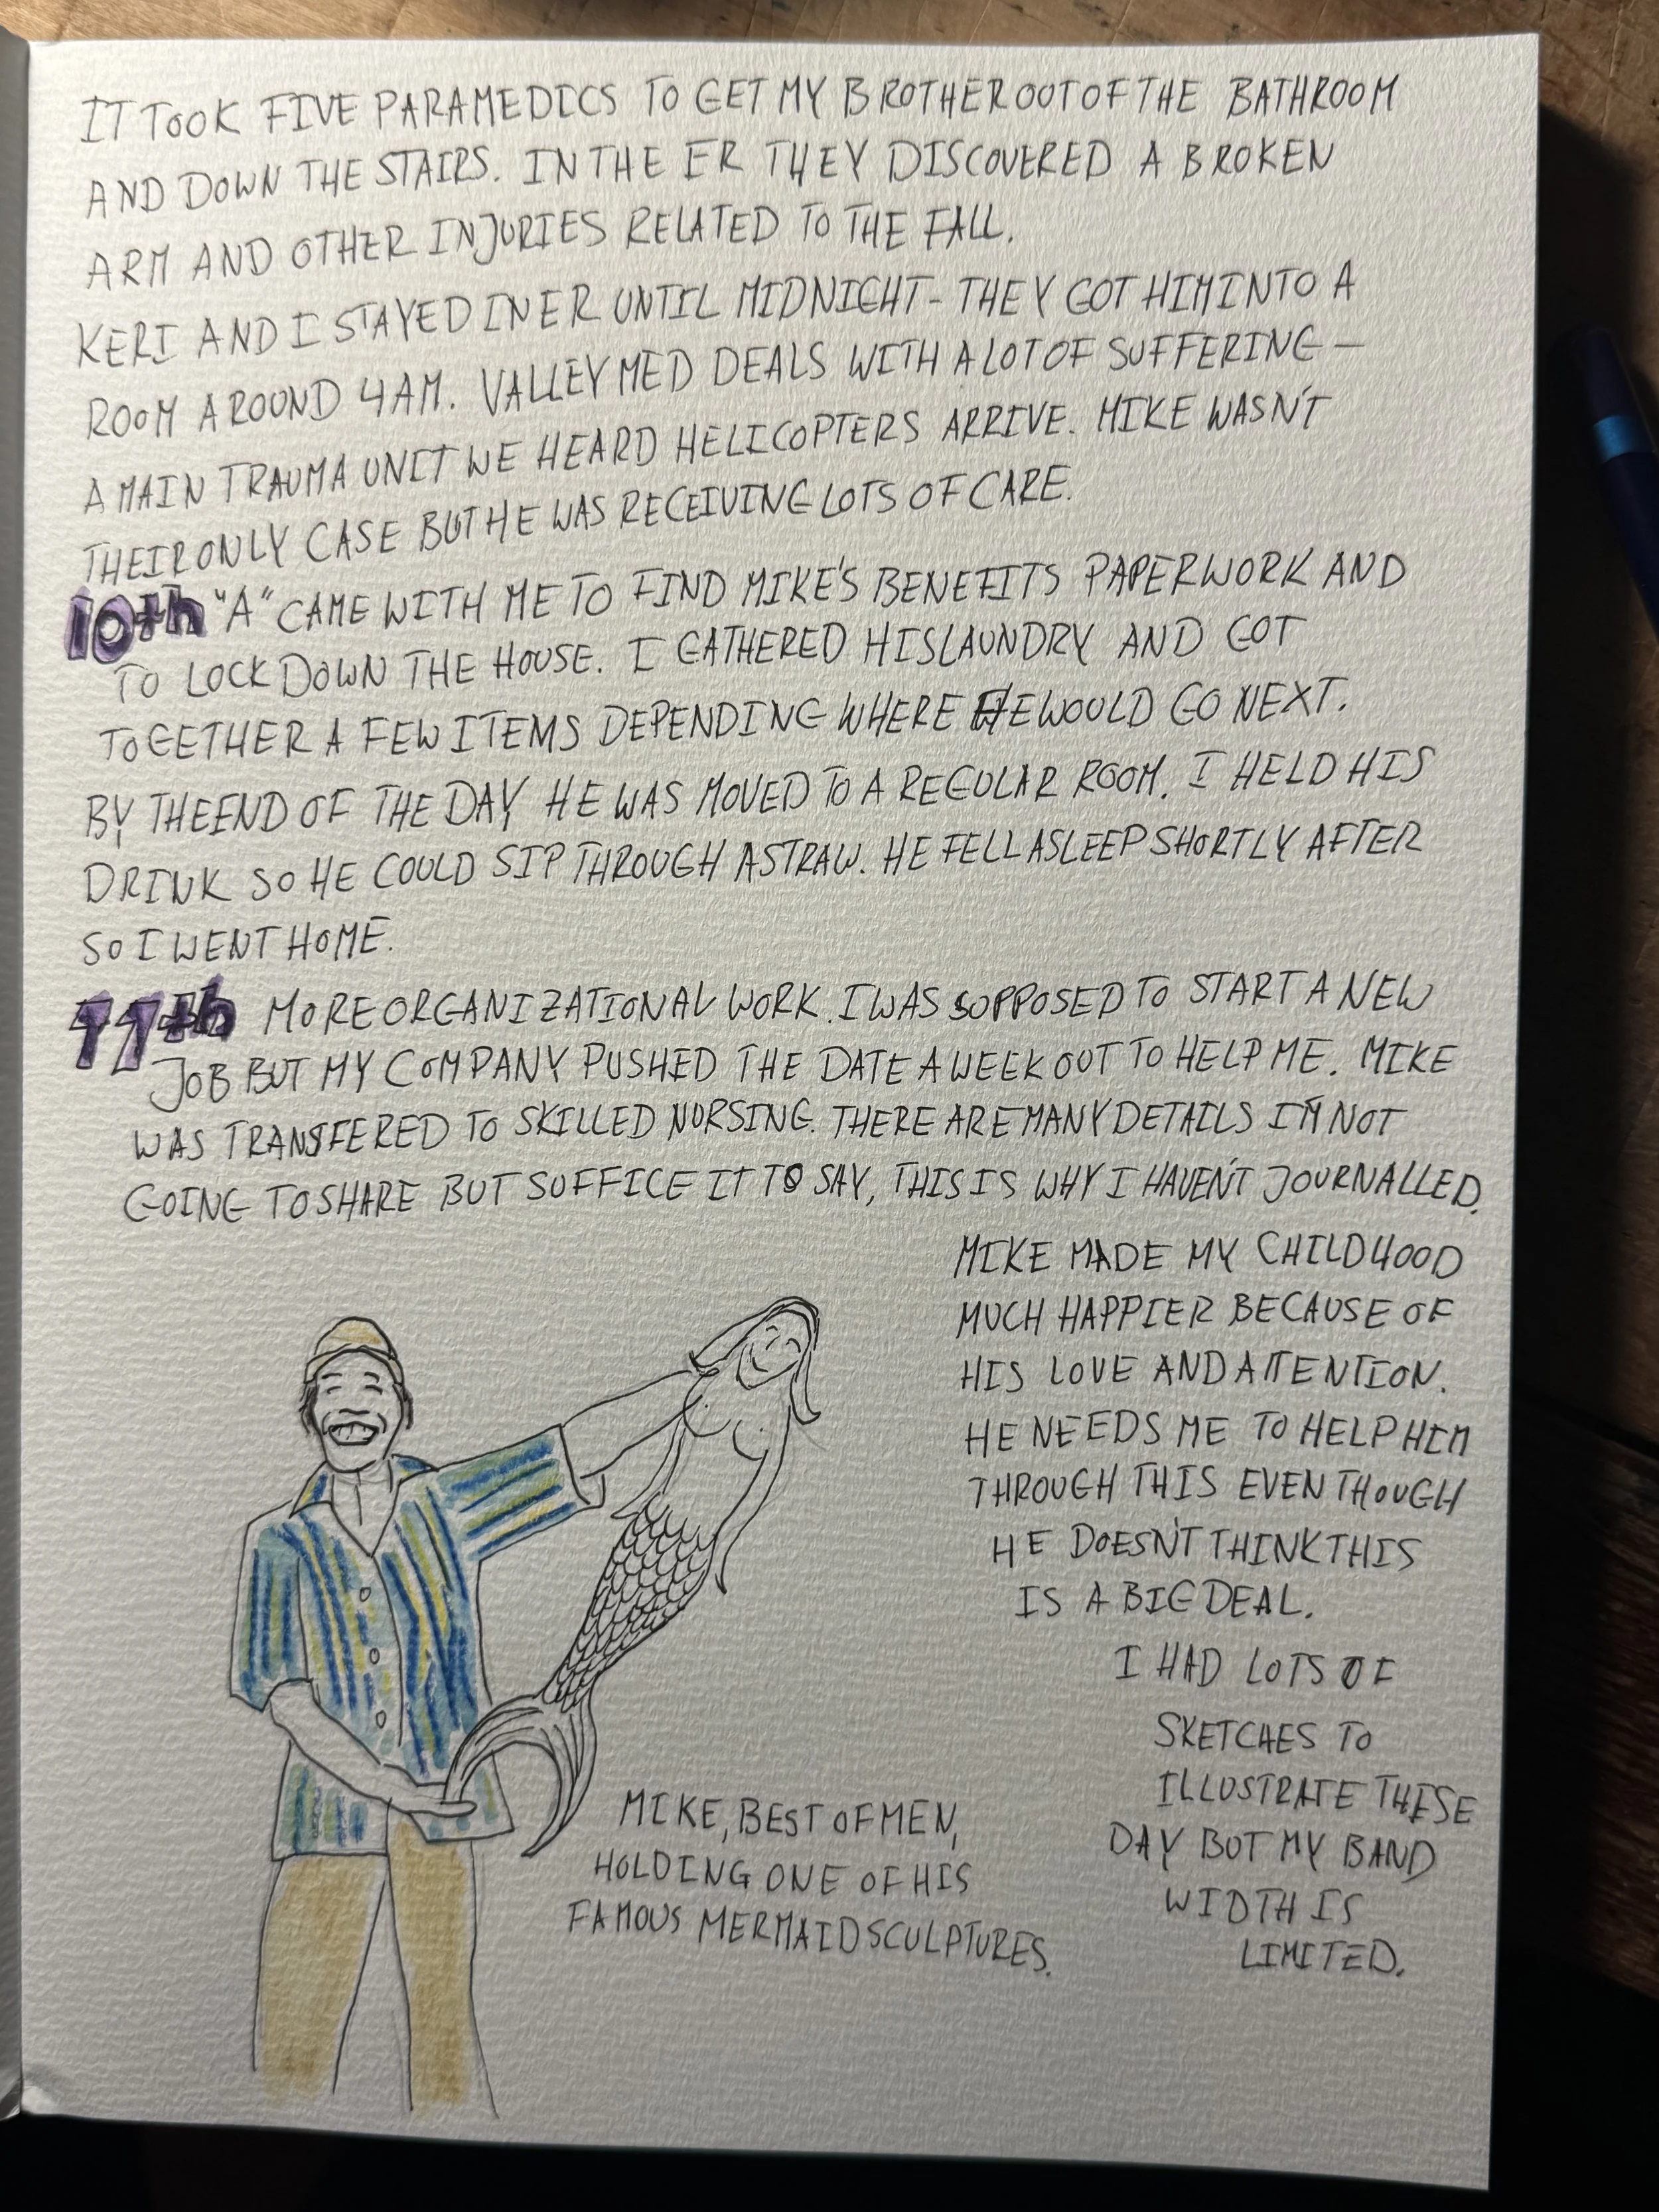 IT TOOK FIVE PARAMEDICS TO GET MY BROTHER OUT OF THE BATHROOM
AND DOWN THE STAIRS. IN THE ER THEY DISCOVERED A BROKEN
ARM AND OTHER INJURIES RELATED TO THE FALL.
KERI AND I STAYED IN ER UNTIL MIDNIGHT - THEY GOT HIM INTO A
ROOM AROUND 4AM. VALLEY MED DEALS WITH A LOT OF SUFFERING —
A MAIN TRAUMA UNIT WE HEARD HELICOPTERS ARRIVE. MIKE WASN'T
THEIR ONLY CASE BUT HE WAS RECEIVING LOTS OF CARE.
10th "A" CAME WITH ME TO FIND MIKE'S BENEFITS PAPERWORK AND
TO LOCK DOWN THE HOUSE. I GATHERED HIS LAUNDRY AND GOT
TOGETHER A FEW ITEMS DEPENDING WHERE HE WOULD GO NEXT.
BY THE END OF THE DAY HE WAS MOVED TO A REGULAR ROOM. I HELD HIS
DRINK SO HE COULD SIP THROUGH A STRAW. HE FELL ASLEEP SHORTLY AFTER
SO I WENT HOME.
11th MORE ORGANIZATIONAL WORK. I WAS SUPPOSED TO START A NEW
JOB BUT MY COMPANY PUSHED THE DATE A WEEK OUT TO HELP ME. MIKE
WAS TRANSFERED TO SKILLED NURSING. THERE ARE MANY DETAILS I'M NOT
GOING TO SHARE BUT SUFFICE IT TO SAY, THIS IS WHY I HAVEN'T JOURNALLED.
MIKE MADE MY CHILDHOOD
MUCH HAPPIER BECAUSE OF
HIS LOVE AND ATTENTION.
HE NEEDS ME TO HELP HIM
THROUGH THIS EVEN THOUGH
HE DOESN'T THINK THIS
IS A BIG DEAL.
I HAD LOTS OF
SKETCHES TO
ILLUSTRATE THESE
DAY BUT MY BAND
WIDTH IS
LIMITED.
MIKE, BEST OF MEN,
HOLDING ONE OF HIS
FAMOUS MERMAID SCULPTURES.